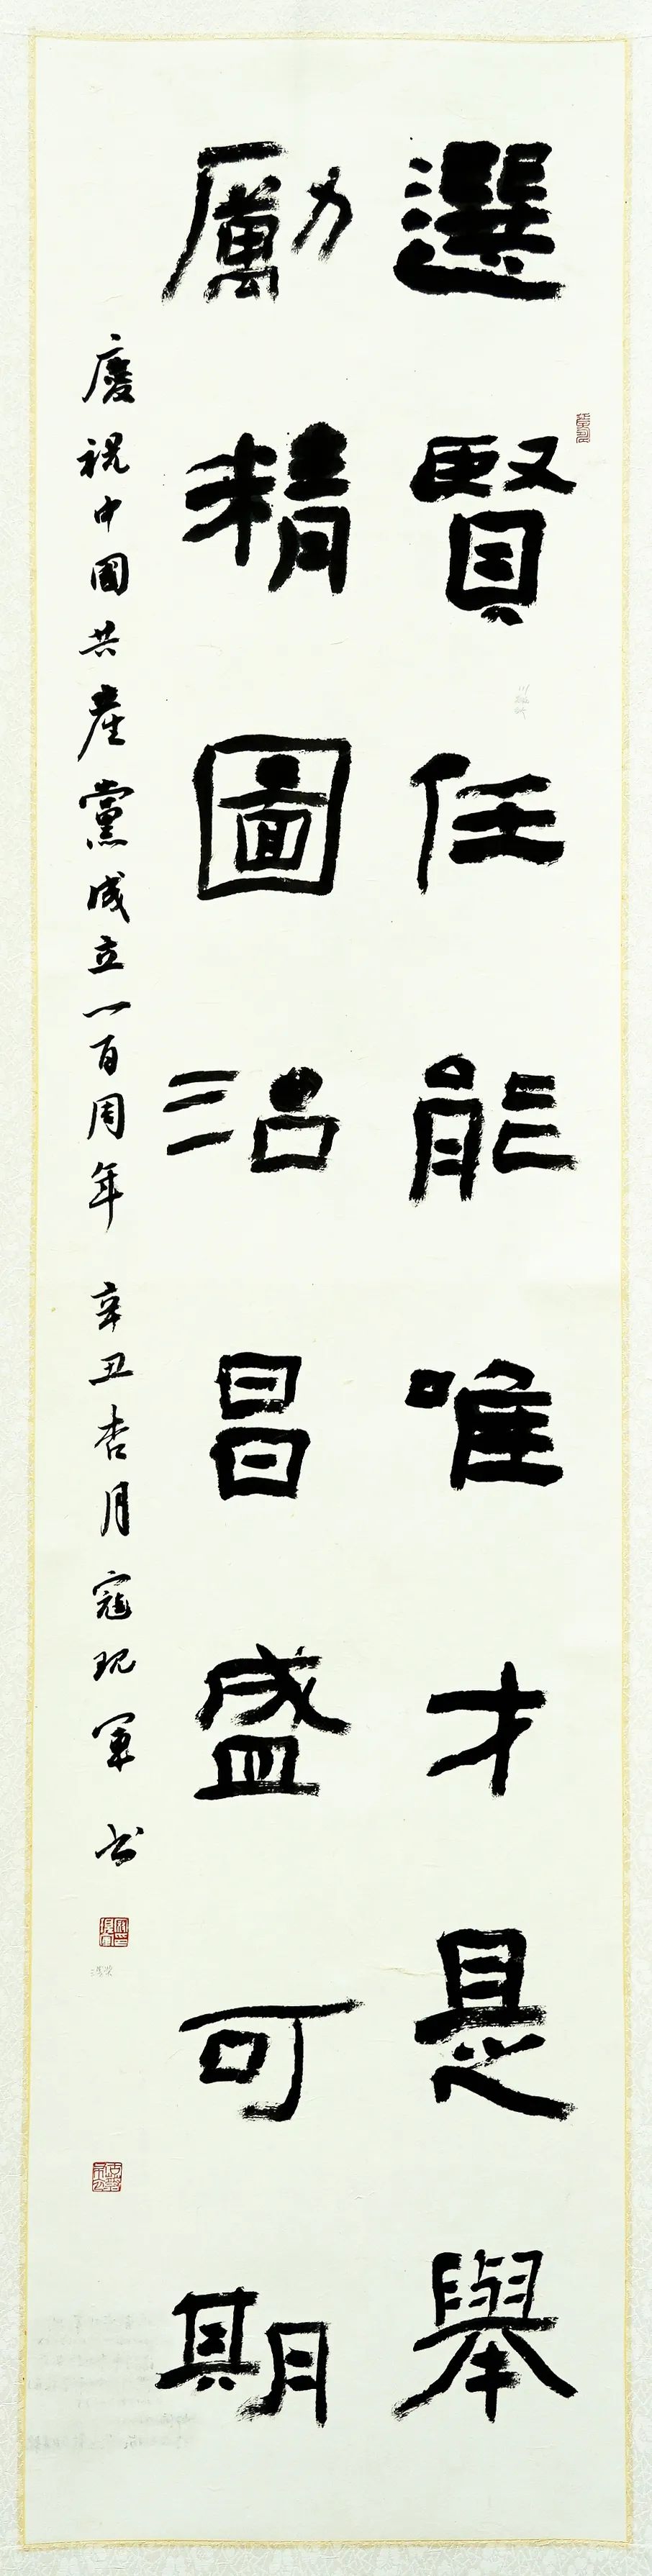 選賢任能唯才是舉
勵精圖治昌盛可期
慶祝中國共產黨成立一百周年 辛丑杏月寇現軍书